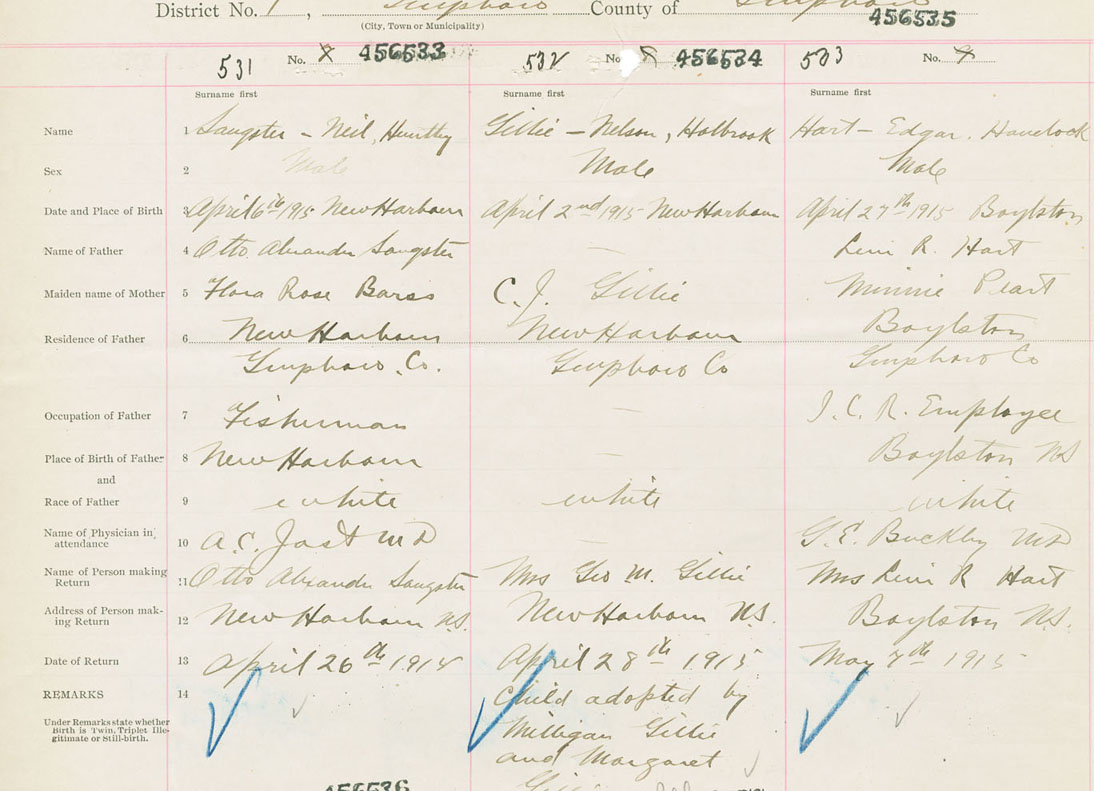 District No. 1, Guysboro County of
(City, Town or Municipality)
456535
531 No. 8 456533
532 No. 8 456534
533 No. 9
Surname first Surname first Surname first
Name 1 Sangster - Neil, Huntley Gillie - Nelson, Holbrook Hart - Edgar. Havelock
Sex 2 Male Male Male
Date and Place of Birth 3 April 6th 1915 New Harbour April 2nd 1915 New Harbour April 27th 1915 Boylston
Name of Father 4 Otto. Alexander Sangster — Levi R. Hart
Maiden name of Mother 5 Flora Rose Barss C. J. Gillie Minnie Peart
Residence of Father 6 New Harbour New Harbour Boylston
Guysboro Co. Guysboro Co Guysboro Co
Occupation of Father 7 Fisherman — I. C. R. Employee
Place of Birth of Father 8 New Harbour — Boylston NS
and
Race of Father 9 white white white
Name of Physician in attendance 10 A. C. Jost MD — G. E. Buckley MD
Name of Person making Return 11 Otto Alexander Sangster Mrs Geo M. Gillie Mrs Levi R Hart
Address of Person making Return 12 New Harbour N.S. New Harbour N.S. Boylston N.S.
Date of Return 13 April 26th 1915 April 28th 1915 May 7th 1915
REMARKS 14 Child adopted by
Under Remarks state whether Birth is Twin, Triplet Illegitimate or Still-birth.
Milligan Gillie
and Margaret
Gillie
456536